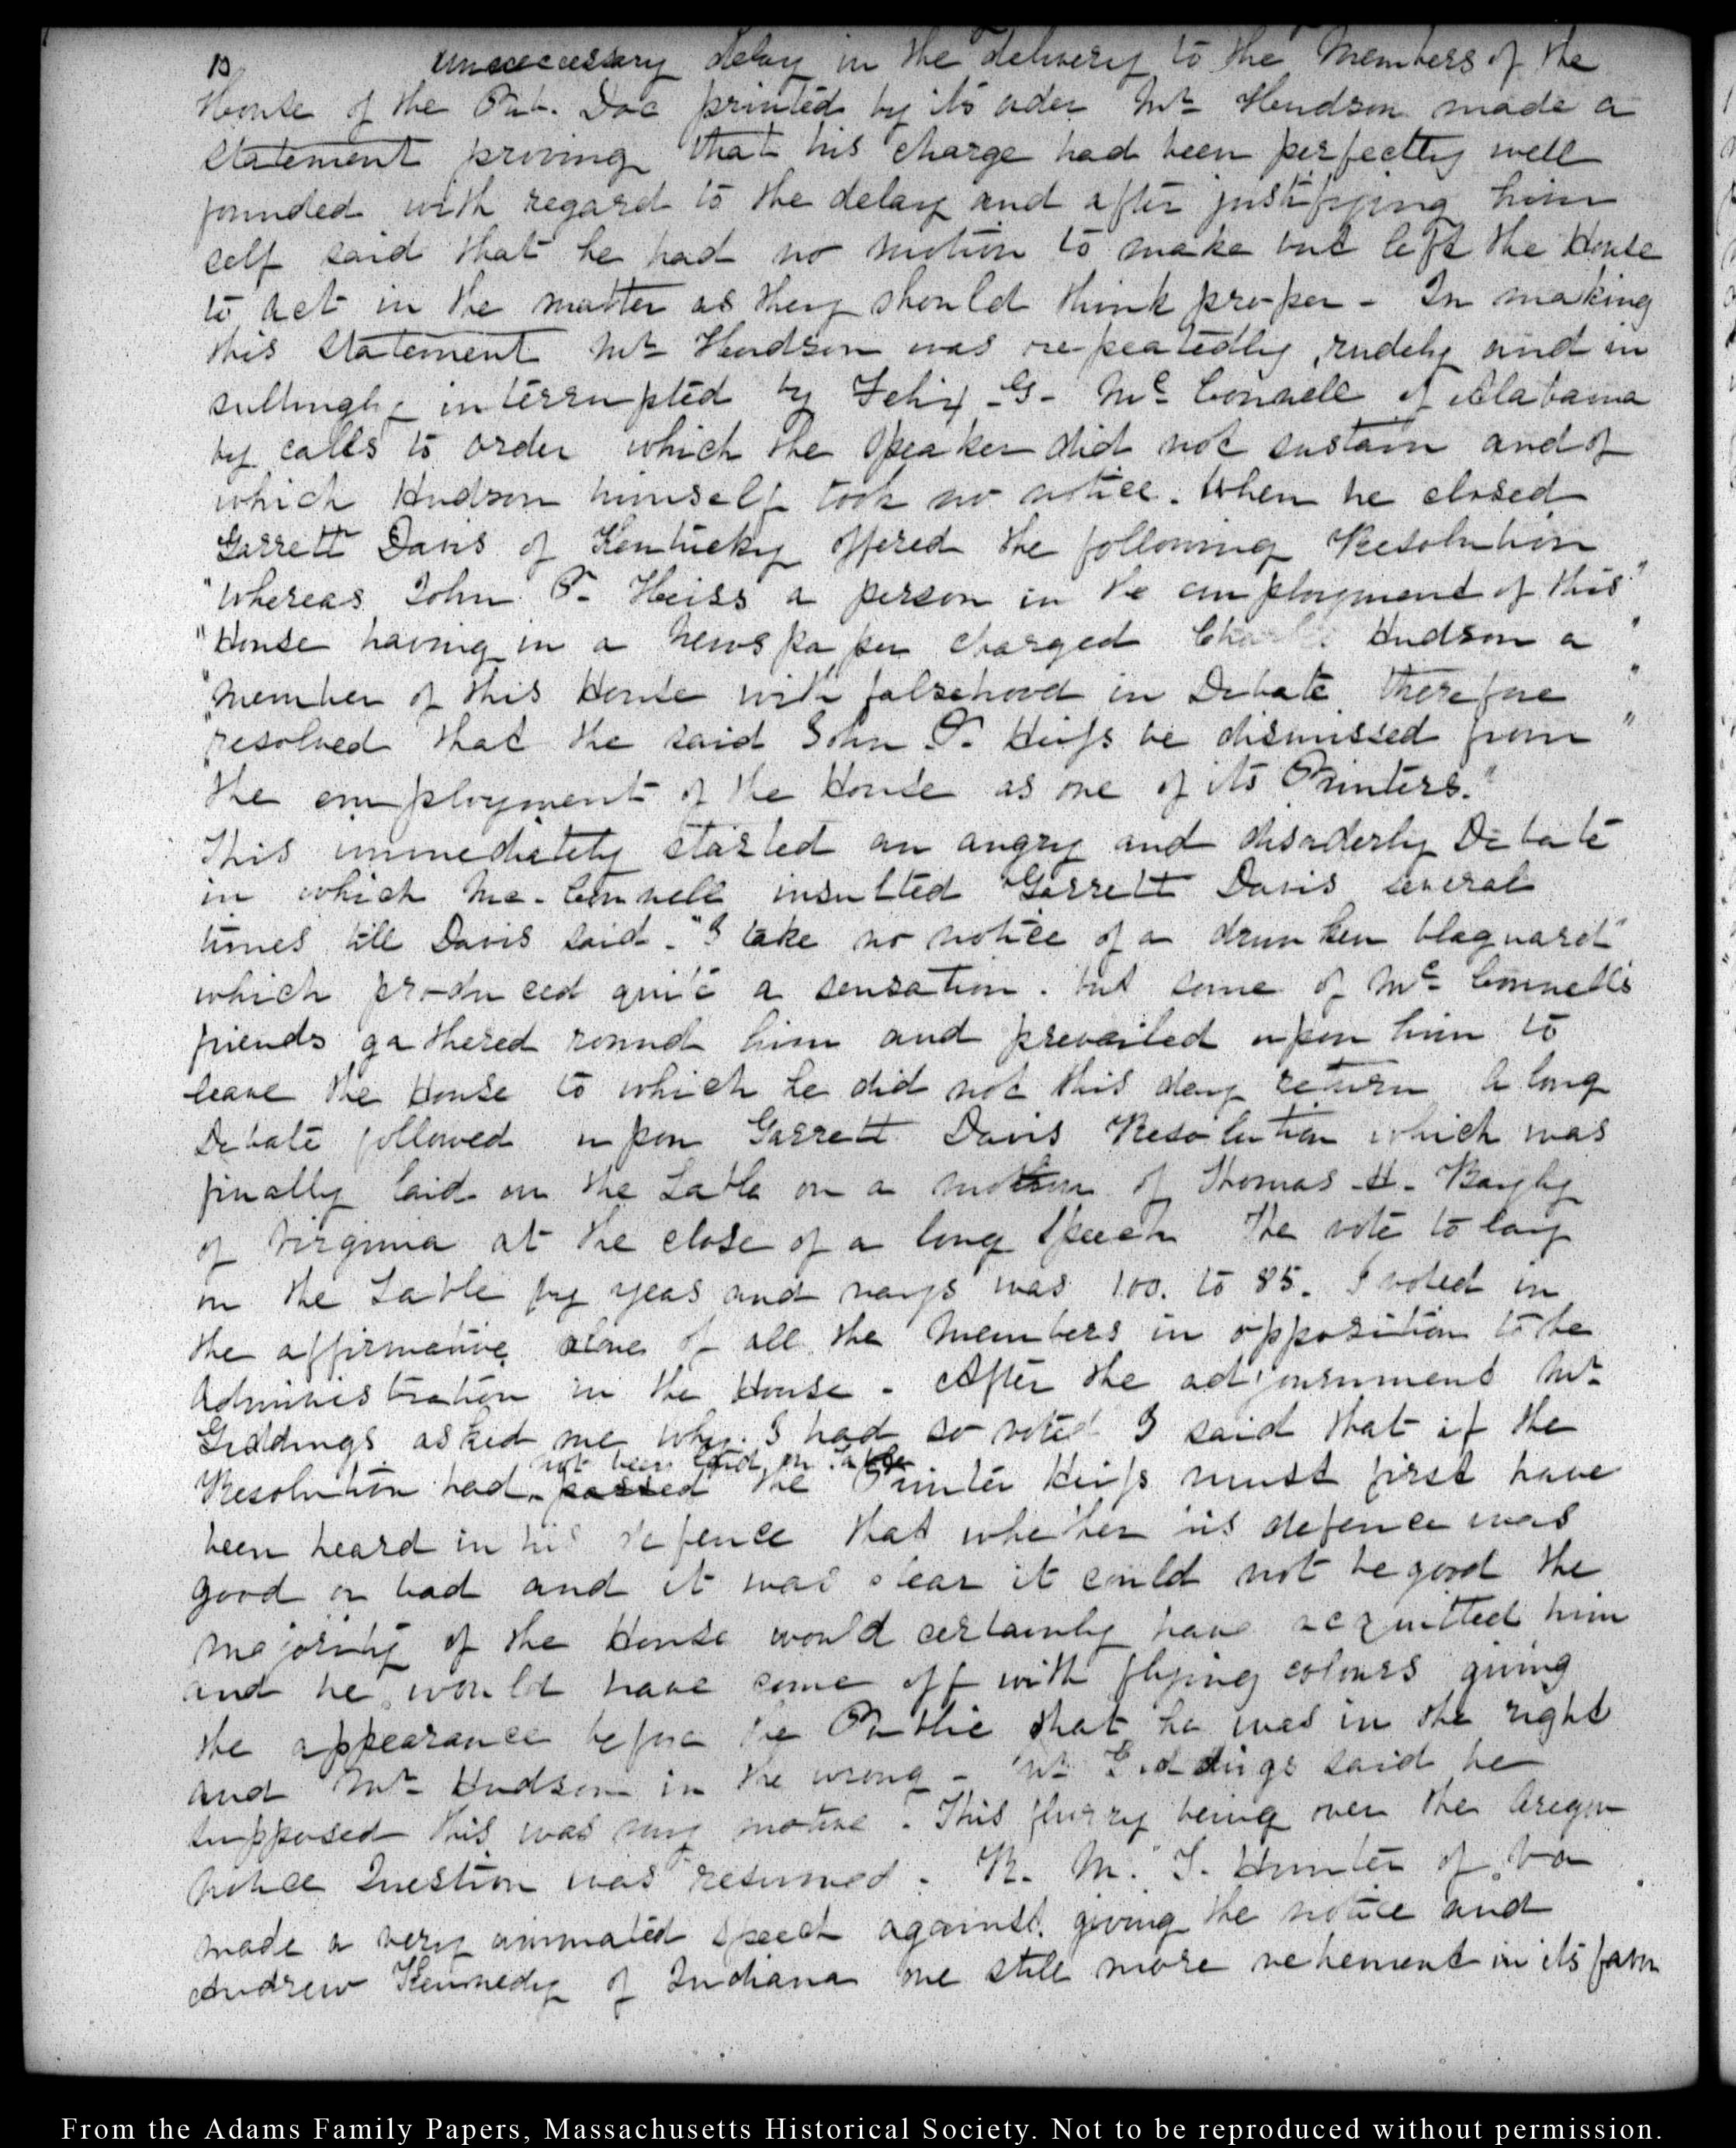 10 unnecessary delay in the delivery to the Members of the
House of the Pub. Doc printed by its order Mr Hudson made a
statement proving that his charge had been perfectly well
founded with regard to the delay and after justifying him
self said that he had no motion to make but left the House
to act in the matter as they should think proper - In making
this statement Mr Hudson was repeatedly, rudely and in
sultingly interrupted by Felix G. Mc Connell of Alabama
by calls to order which the Speaker did not sustain and of
which Hudson himself took no notice. When he closed
Garrett Davis of Kentucky offered the following Resolution
"Whereas John P. Heiss a person in the employment of this"
"House having in a Newspaper charged Charles Hudson a "
"member of this House with falsehood in Debate therefore "
"resolved that the said John P. Heiss be dismissed from "
the employment of the House as one of its Printers."
This immediately started an angry and disorderly Debate
in which Mc. Connell insulted Garrett Davis several
times till Davis said. "I take no notice of a drunken blaguard"
which produced quite a sensation. but some of Mc Connells
friends gathered round him and prevailed upon him to
leave the House to which he did not this day return A long
Debate followed upon Garrett Davis Resolution which was
finally laid on the Table on a motion of Thomas H. Bayly
of Virginia at the close of a long Speech The vote to lay
on the Table by yeas and nays was 100. to 85. I voted in
the affirmative alone of all the Members in opposition to the
Administration in the House. After the adjournment Mr
Giddings asked me why I had so voted I said that if the
not been laid on Table
Resolution had passed the Printer Heiss must first have
been heard in his defence that whether his defence was
good or bad and it was clear it could not be good the
majority of the House would certainly have acquitted him
and he would have come off with flying colours giving
the appearance before the Public that he was in the right
and Mr Hudson in the wrong - Mr Giddings said he
supposed this was my motive. This flurry being over the Oregon
notice Question was resumed. R. M. T. Hunter of Va
made a very animated speech against giving the notice and
Andrew Kennedy of Indiana one still more vehement in its favor
From the Adams Family Papers, Massachusetts Historical Society. Not to be reproduced without permission.